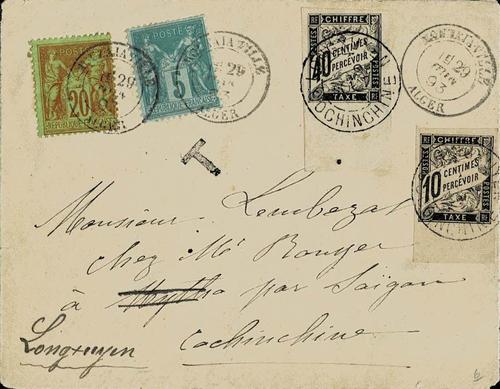 20
5
POSTES
29
93
ALGER
29
ALGER
CHIFFRE
POSTES
40
CENTIMES
A PERCEVOIR
TAXE
COCHINCHINE
29
93
ALGER
CHIFFRE
POSTES
10
CENTIMES
A PERCEVOIR
TAXE
T
Monsieur Lombezat
chez Mr Rouyer
à par Saïgon
Cochinchine
Longxuyen